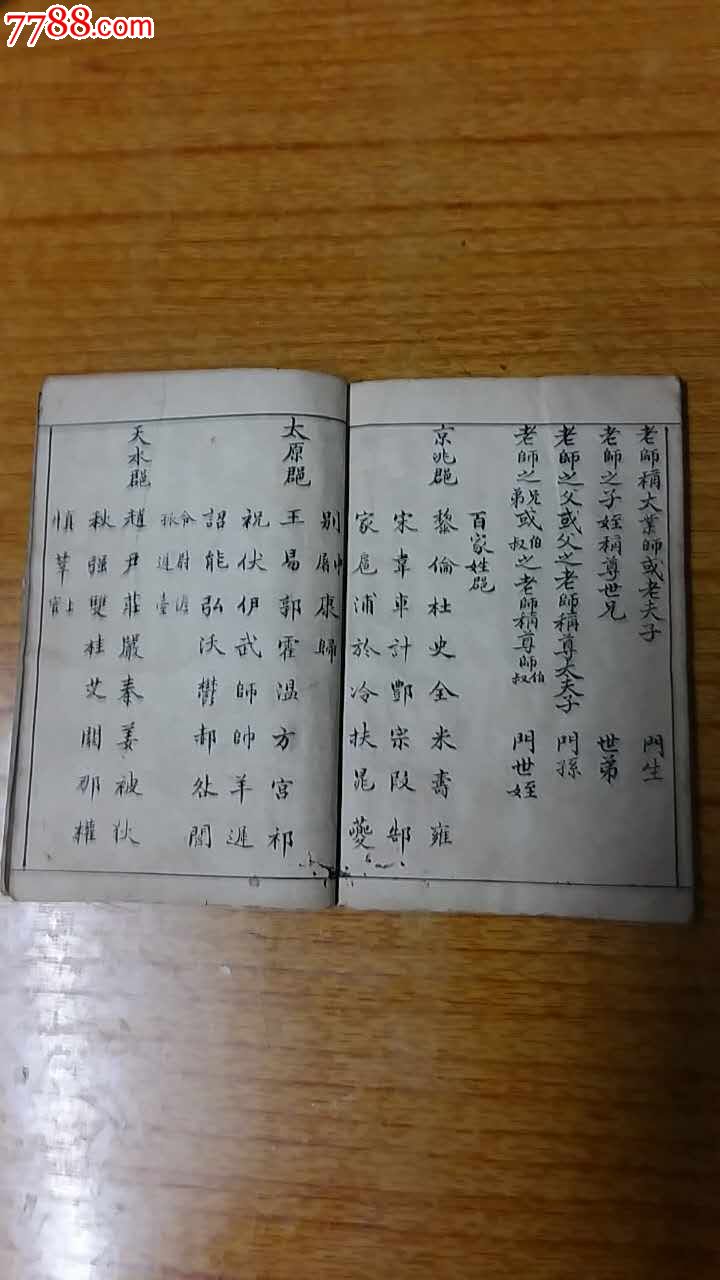 7788.com
老師稱大業師或老夫子 門生
老師之子姪稱尊世兄 世弟
老師之父或父之老師稱尊太夫子 門孫
老師之兄弟或伯叔之老師稱尊師伯叔 門世姪
百家姓郡
京兆郡 黎倫杜史全米壽雍
宋韋車計酆宗段郜
家扈浦於冷扶晁夔
別 康歸
太原郡 王易郭霍溫方宮祁
祝伏伊武師帥羊遲
詔能弘沃鬱郝 閻
令尉遲
天水郡 趙尹莊嚴秦姜被狄
秋强雙桂艾關那權
慎莘上官